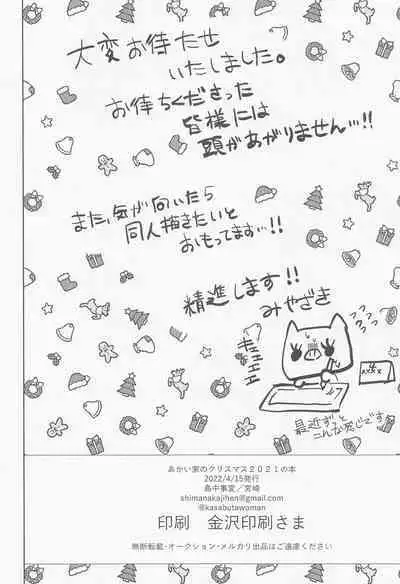 大変お待たせ
いたしました。
お待ちくださった
皆様には
頭があがりません…!!
また、気が向いたら
同人描きたいと
おもってます…!!
精進します!!
みやざき
最近ずっと
こんな感じです
あかい家のクリスマス2021の本
2022/4/15発行
島中事変/宮崎
shimanakajihen@gmail.com
@kasabutawoman
印刷 金沢印刷さま
無断転載・オークション・メルカリ出品はご遠慮ください